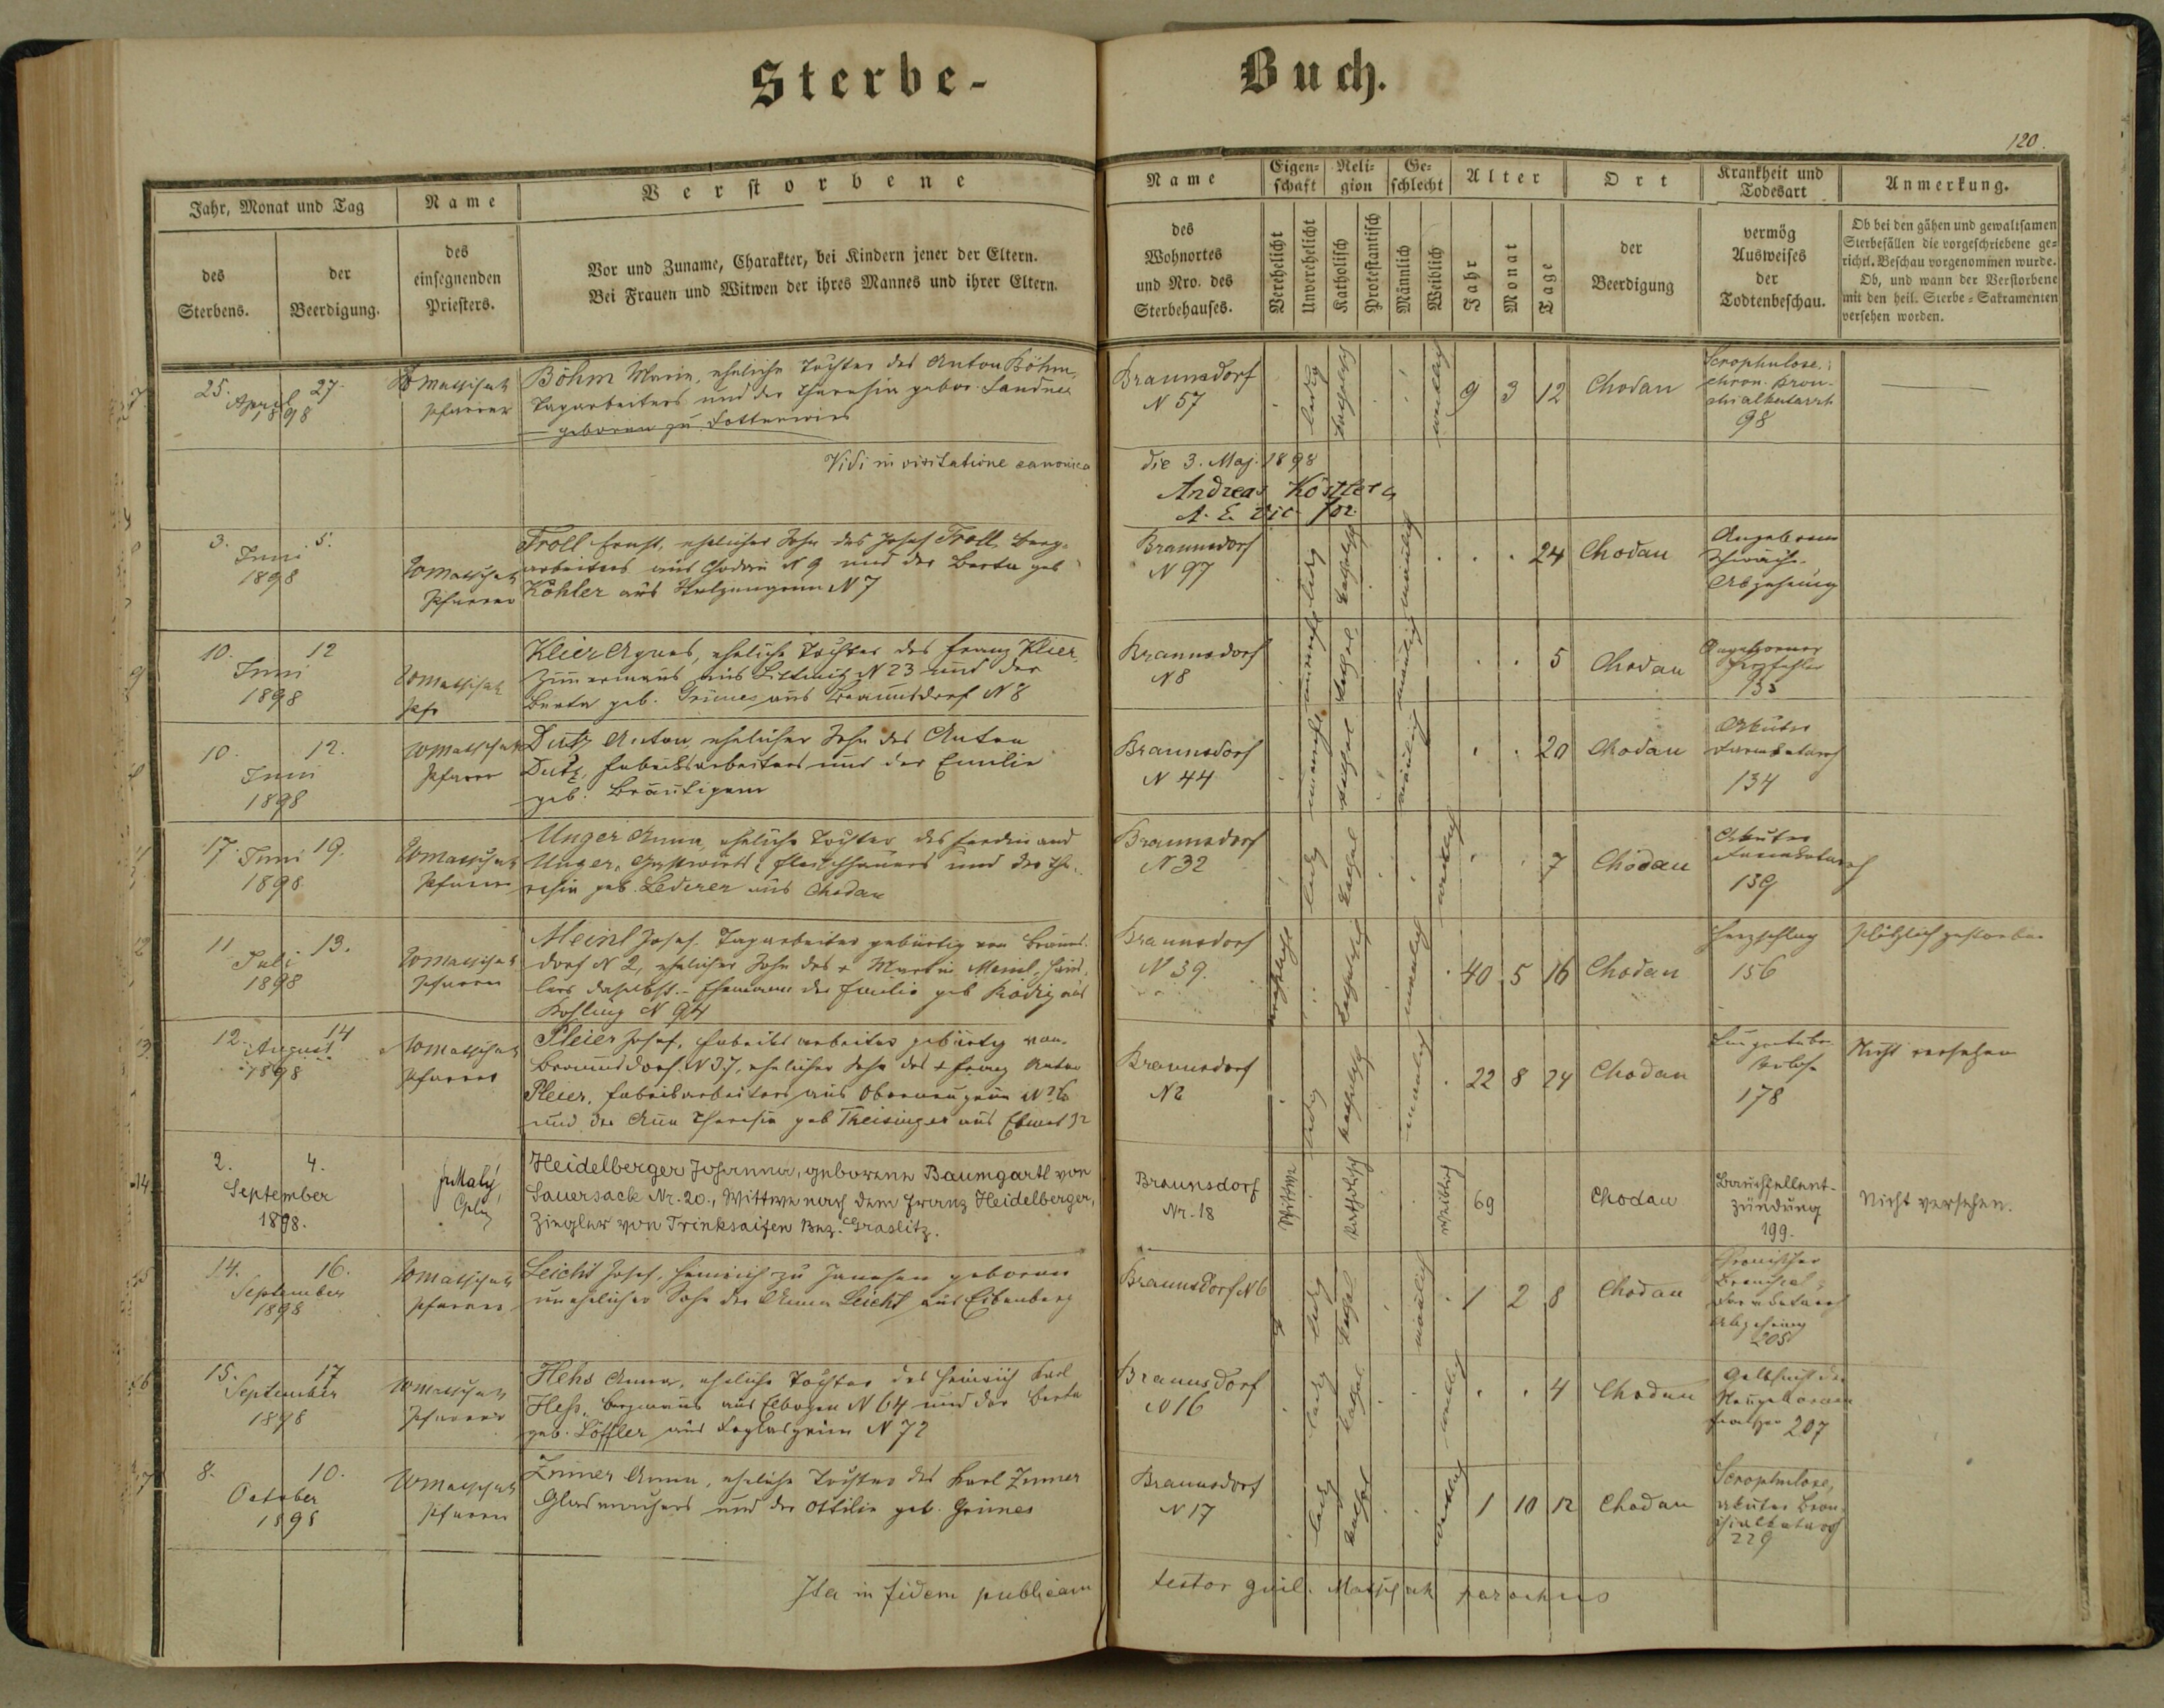 Sterbe-
Buch.
120.
Jahr, Monat und Tag
Name
Verstorbene
des
Sterbens.
der
Beerdigung.
des
einsegnenden
Priesters.
Vor und Zuname, Charakter, bei Kindern jener der Eltern.
Bei Frauen und Witwen der ihres Mannes und ihrer Eltern.
Name
Eigen-
schaft
Reli-
gion
Ge-
schlecht
Alter
Ort
Krankheit und
Todesart
Anmerkung.
des
Wohnortes
und Nro. des
Sterbehauses.
Verehelicht
Unverehelicht
Katholisch
Protestantisch
Männlich
Weiblich
Jahr
Monat
Tage
der
Beerdigung
vermög
Ausweises
der
Todtenbeschau.
Ob bei den gähen und gewaltsamen
Sterbefällen die vorgeschriebene ge-
richtl. Beschau vorgenommen wurde.
Ob, und wann der Verstorbene
mit den heil. Sterbe-Sakramenten
versehen worden.
7
25. 27.
April
1898
Pfarrer
Böhm Marie, eheliche Tochter des Anton Böhm,
Tagarbeiters und der Theresia gebor. Sandner
geboren zu
Braunsdorf
N 57
ledig
katholisch
weiblich
9 3 12
Chodau
Scrophulose,
chron. Bron-
chialkatarrh
98
Vidi in visitatione canonica
die 3. Maj. 1898
Andreas Köstler
A. E. Vic. for.
8
3. 5.
Juni
1898
Pfarrer
Troll Ernst, ehelicher Sohn des Josef Troll, Berg-
arbeiters aus Chodau N 9 und der Berta geb
Köhler aus N 7
Braunsdorf
N 97
ledig
katholisch
männlich
24
Chodau
Angeborene
Schwäche
Abzehrung
9
10. 12
Juni
1898
Pfr
Klier Agnes, eheliche Tochter des Franz Klier,
Zimmermanns aus Littmitz N 23 und der
Berta geb. Grimes aus Braunsdorf N 8
Braunsdorf
N 8
kathol.
männlich
5
Chodau
Angeborener
Herzfehler
133
10. 12.
Juni
1898
Pfarrer
Dutz Anton, ehelicher Sohn des Anton
Dutz, Fabriksarbeiters und der Emilie
geb. Bräutigam
Braunsdorf
N 44
kathol
männlich
20
Chodau
Akuter
Darmkatarrh
134
17. Juni 19.
1898
Pfarrer
Unger Anna, eheliche Tochter des Ferdinand
Unger, Gastwirts, Fleischhauers und der The-
resia geb. Lederer aus Chodau
Braunsdorf
N 32
ledig
kathol
weiblich
7
Chodau
Akuter
Darmkatarrh
139
12
11. 13.
Juli
1898
Pfarrer
Meinl Josef, Tagarbeiter gebürtig von Brauns-
dorf N 2, ehelicher Sohn des + Martin Meinl, Häus-
lers daselbst. – Ehemann der Emilie geb Ködig aus
Kohling N 94
Braunsdorf
N 39.
verehelicht
katholisch
männlich
40 5 16
Chodau
Herzschlag
156
Plötzlich gestorben
13
12. 14
August
1898
Pfarrer
Pleier Josef, Fabriksarbeiter gebürtig von
Braunsdorf N 37, ehelicher Sohn des + Franz Anton
Pleier, Fabriksarbeiters aus Oberneugrün N 26
und der Anna Theresia geb Theisinger aus
Braunsdorf
N 2
ledig
katholisch
männlich
22 8 24
Chodau
Lungentuber-
kulose
178
Nicht versehen
14
2. 4.
September
1898.
Fr Malý,
Cpln
Heidelberger Johanna, geborene Baumgartl von
Sauersack Nr. 20., Wittwe nach dem Franz Heidelberger,
Ziegler von Trinksaifen Bez. Graslitz.
Braunsdorf
Nr. 18
Wittwe
katholisch
weiblich
69
Chodau
Bauchfellent-
zündung
199.
Nicht versehen.
15
14. 16.
September
1898
Pfarrer
Leicht Josef, Heinrich zu Janessen geboren
unehelicher Sohn der Anna Leicht aus Eibenberg
Braunsdorf N 6
ledig
kathol
männlich
1 2 8
Chodau
Chronischer
Bronchial-
Darmkatarrh
Abzehrung
205
16
15. 17
September
1898
Pfarrer
Hehs Anna, eheliche Tochter des Heinrich Karl
Heß, Bergmanns aus Elbogen N 64 und der Berta
geb. Löffler aus N 72
Braunsdorf
N 16
ledig
kathol
weiblich
4
Chodau
Gelbsucht der
Neugeborenen
207
17
8. 10.
October
1898
Pfarrer
Zuner Anna, eheliche Tochter des Karl Zuner
Glasmachers und der Ottilie geb. Grimes
Braunsdorf
N 17
ledig
kathol
weiblich
1 10 12
Chodau
Scrophulose,
akuter Bron-
chialkatarrh
229
Ita in fidem publicam
testor Guil. Matschak parochus